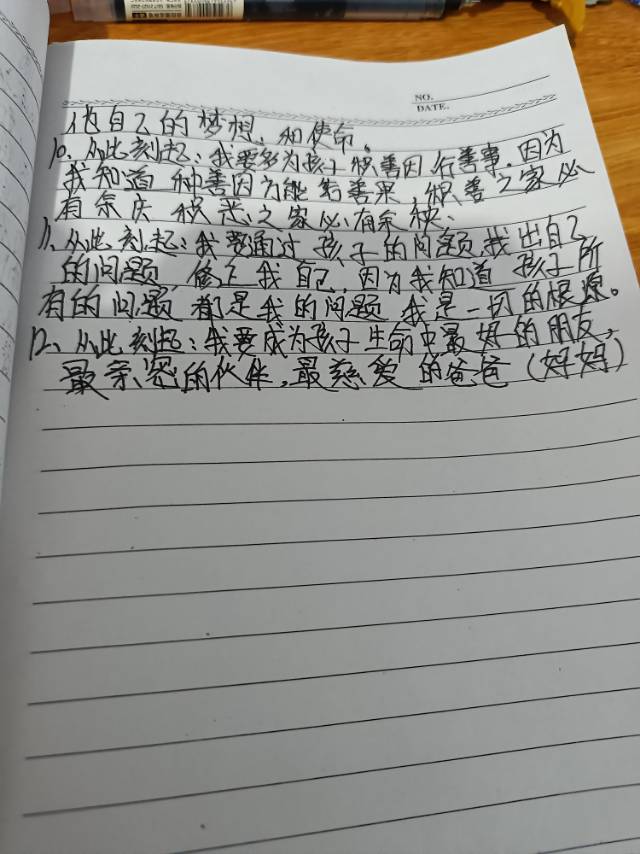 NO.
DATE.
他自己的梦想、和使命。
10、从此刻起：我要多为孩子积善因，行善事，因为
我知道种善因方能结善果，积善之家必
有余庆 积恶之家必有余殃、
11、从此刻起：我要通过孩子的问题找出自己
的问题，修正我自己，因为我知道 孩子所
有的问题都是我的问题，我是一切的根源。
12、从此刻起：我要成为孩子生命中最好的朋友，
最亲密的伙伴，最慈爱的爸爸（妈妈）